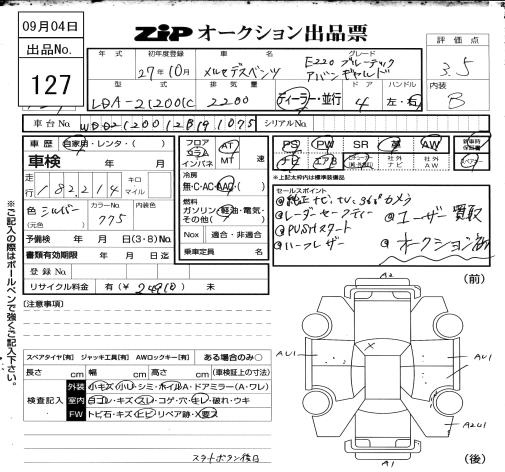 09月04日
ZiP オークション出品票
出品No.
127
年式 初年度登録 車名 グレード 評価点
27年10月 メルセデスベンツ E220 ブルーテック アバンギャルド 3.5
型式 排気量 ドア ハンドル 内装
LDA-212001C 2200 ディーラー・並行 4 左・右 B
車台No. WDD2120012B191075 シリアルNo.
車歴 自家用・レンタ・( )
フロア コラム インパネ AT MT 速
PS PW SR 革 AW
ナビ エアB 社外ナビ 社外AW
車検 年 月
※上記太枠内は標準装備品
走行 182,214 キロ マイル
冷房 無・C・AC・AAC・( )
セールスポイント
@純正ナビ、TV、360°カメラ
@レーダーセーフティー @ユーザー買取
@PUSHスタート
@ハーフレザー @オークション
色 シルバー (元色) カラーNo. 775 内装色
燃料 ガソリン・軽油・電気・その他( )
予備検 年 月 日(3・8)No.
書類有効期限 年 月 日迄
Nox 適合・非適合
登録No.
乗車定員 名
リサイクル料金 有(¥ ) 未
[注意事項]
※ご記入の際はボールペンで強くご記入下さい。
(前)
A2
AU1
X
AU1
A2U1
A1
(後)
スペアタイヤ[有] ジャッキ工具[有] AWロックキー[有] ある場合のみ○
長さ cm 幅 cm 高さ cm (車検証上の寸法)
検査記入
外装 小キズ・小U・シミ・ホイルA・ドアミラー(A・ワレ)
室内 ヨゴレ・キズ・スレ・コゲ・穴・キレ・破れ・ウキ
FW トビ石・キズ・ヒビ・リペア跡・X要ス
スタートボタン後日